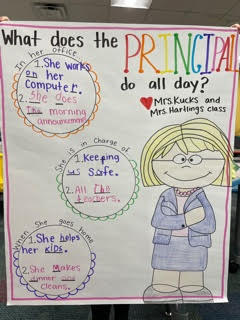 What does the PRINCIPAL
do all day?
♥ Mrs. Kucks and
Mrs. Hartlings class
In her office
1. She works
on her
Computer.
2. She does
The morning
announcements
She is in Charge of
1. Keeping
us safe.
2. All The
teachers.
When She goes home
1. She helps
her kids.
2. She Makes
dinner and
cleans.